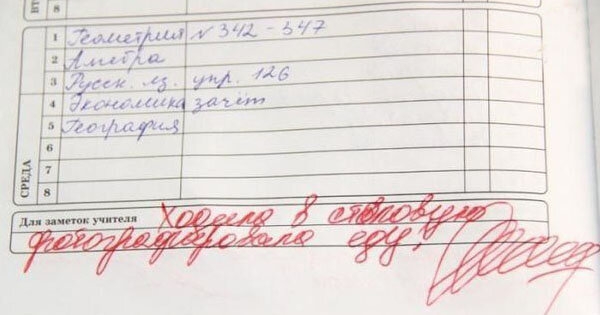 ВТ
8
СРЕДА
1 Геометрия № 342-347
2 Алгебра
3 Русск. яз. упр. 126
4 Экономика зачёт
5 География
6
7
8
Для заметок учителя Ходила в столовую
фотографировала еду!